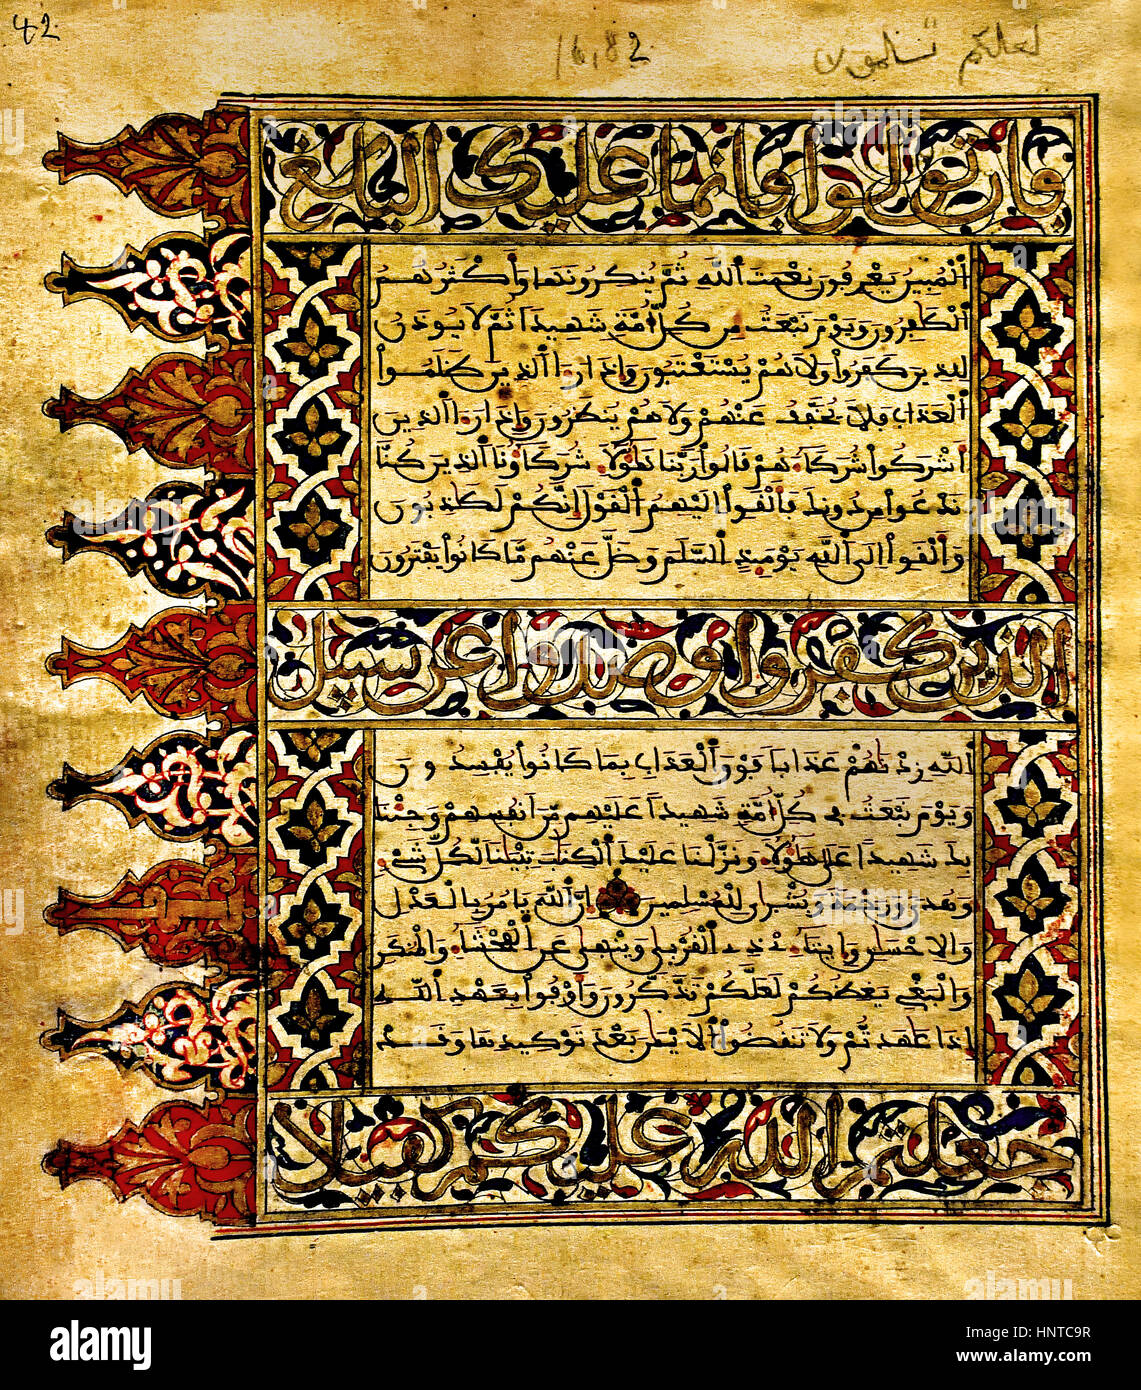 42
16,82
لعلكم تسلمون
فإن تولوا فإنما عليك البلغ
المبين يعرفون نعمت الله ثم ينكرونها وأكثرهم
الكفرون ويوم نبعث من كل أمة شهيدا ثم لا يوذن
للذين كفروا ولا هم يستعتبون وإذا رءا الذين ظلموا
العذاب فلا يخفف عنهم ولا هم ينظرون وإذا رءا الذين
أشركوا شركاءهم قالوا ربنا هؤلاء شركاؤنا الذين كنا
ندعوا من دونك فألقوا إليهم القول إنكم لكذبون
وألقوا إلى الله يومئذ السلم وضل عنهم ما كانوا يفترون
الذين كفروا وصدوا عن سبيل
الله زدنهم عذابا فوق العذاب بما كانوا يفسدون
ويوم نبعث في كل أمة شهيدا عليهم من أنفسهم وجئنا
بك شهيدا على هؤلاء ونزلنا عليك الكتب تبينا لكل شيء
وهدى ورحمة وبشرى للمسلمين إن الله يامر بالعدل
والإحسان وإيتاء ذي القربى وينهى عن الفحشاء والمنكر
والبغي يعظكم لعلكم تذكرون وأوفوا بعهد الله
إذا عهدتم ولا تنقضوا الأيمن بعد توكيدها وقد
جعلتم الله عليكم كفيلا
alamy
Image ID: HNTC9R
www.alamy.com